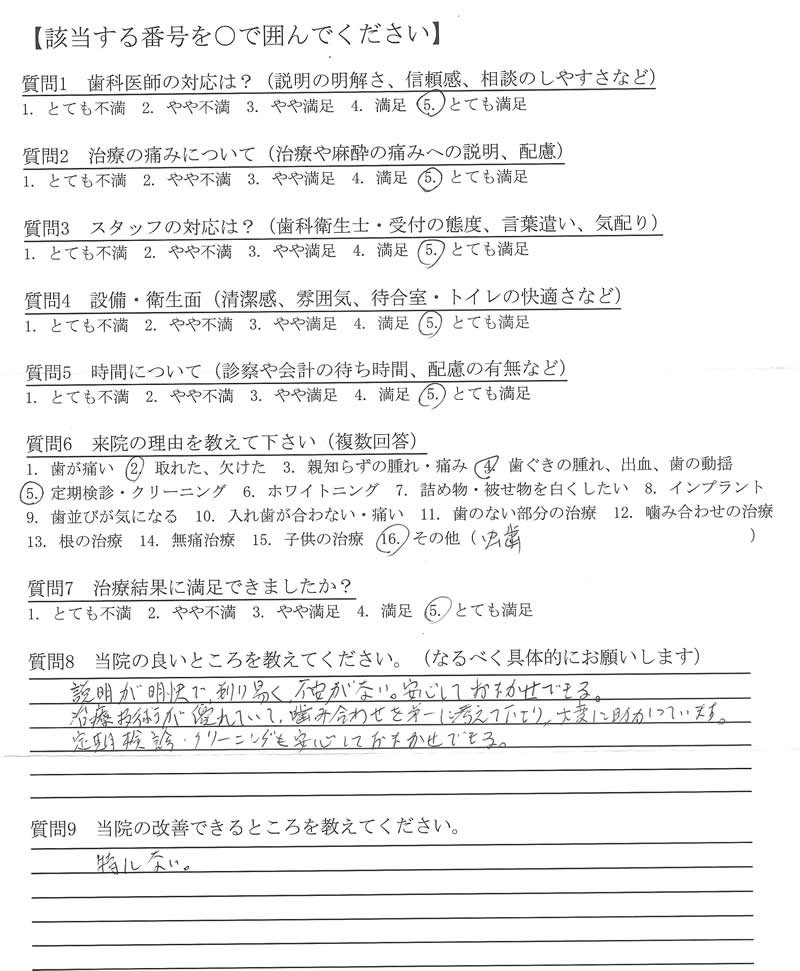 【該当する番号を○で囲んでください】
質問1 歯科医師の対応は？（説明の明解さ、信頼感、相談のしやすさなど）
1. とても不満 2. やや不満 3. やや満足 4. 満足 5. とても満足
質問2 治療の痛みについて（治療や麻酔の痛みへの説明、配慮）
1. とても不満 2. やや不満 3. やや満足 4. 満足 5. とても満足
質問3 スタッフの対応は？（歯科衛生士・受付の態度、言葉遣い、気配り）
1. とても不満 2. やや不満 3. やや満足 4. 満足 5. とても満足
質問4 設備・衛生面（清潔感、雰囲気、待合室・トイレの快適さなど）
1. とても不満 2. やや不満 3. やや満足 4. 満足 5. とても満足
質問5 時間について（診察や会計の待ち時間、配慮の有無など）
1. とても不満 2. やや不満 3. やや満足 4. 満足 5. とても満足
質問6 来院の理由を教えて下さい（複数回答）
1. 歯が痛い 2. 取れた、欠けた 3. 親知らずの腫れ・痛み 4. 歯ぐきの腫れ、出血、歯の動揺
5. 定期検診・クリーニング 6. ホワイトニング 7. 詰め物・被せ物を白くしたい 8. インプラント
9. 歯並びが気になる 10. 入れ歯が合わない・痛い 11. 歯のない部分の治療 12. 噛み合わせの治療
13. 根の治療 14. 無痛治療 15. 子供の治療 16. その他（虫歯）
質問7 治療結果に満足できましたか？
1. とても不満 2. やや不満 3. やや満足 4. 満足 5. とても満足
質問8 当院の良いところを教えてください。（なるべく具体的にお願いします）
説明が明快で、判り易く、不安がない。安心しておまかせできる。
治療技術が優れていて、噛み合わせを第一に考えて下さり、大変に助かっています。
定期検診・クリーニングも安心しておまかせできる。
質問9 当院の改善できるところを教えてください。
特にない。